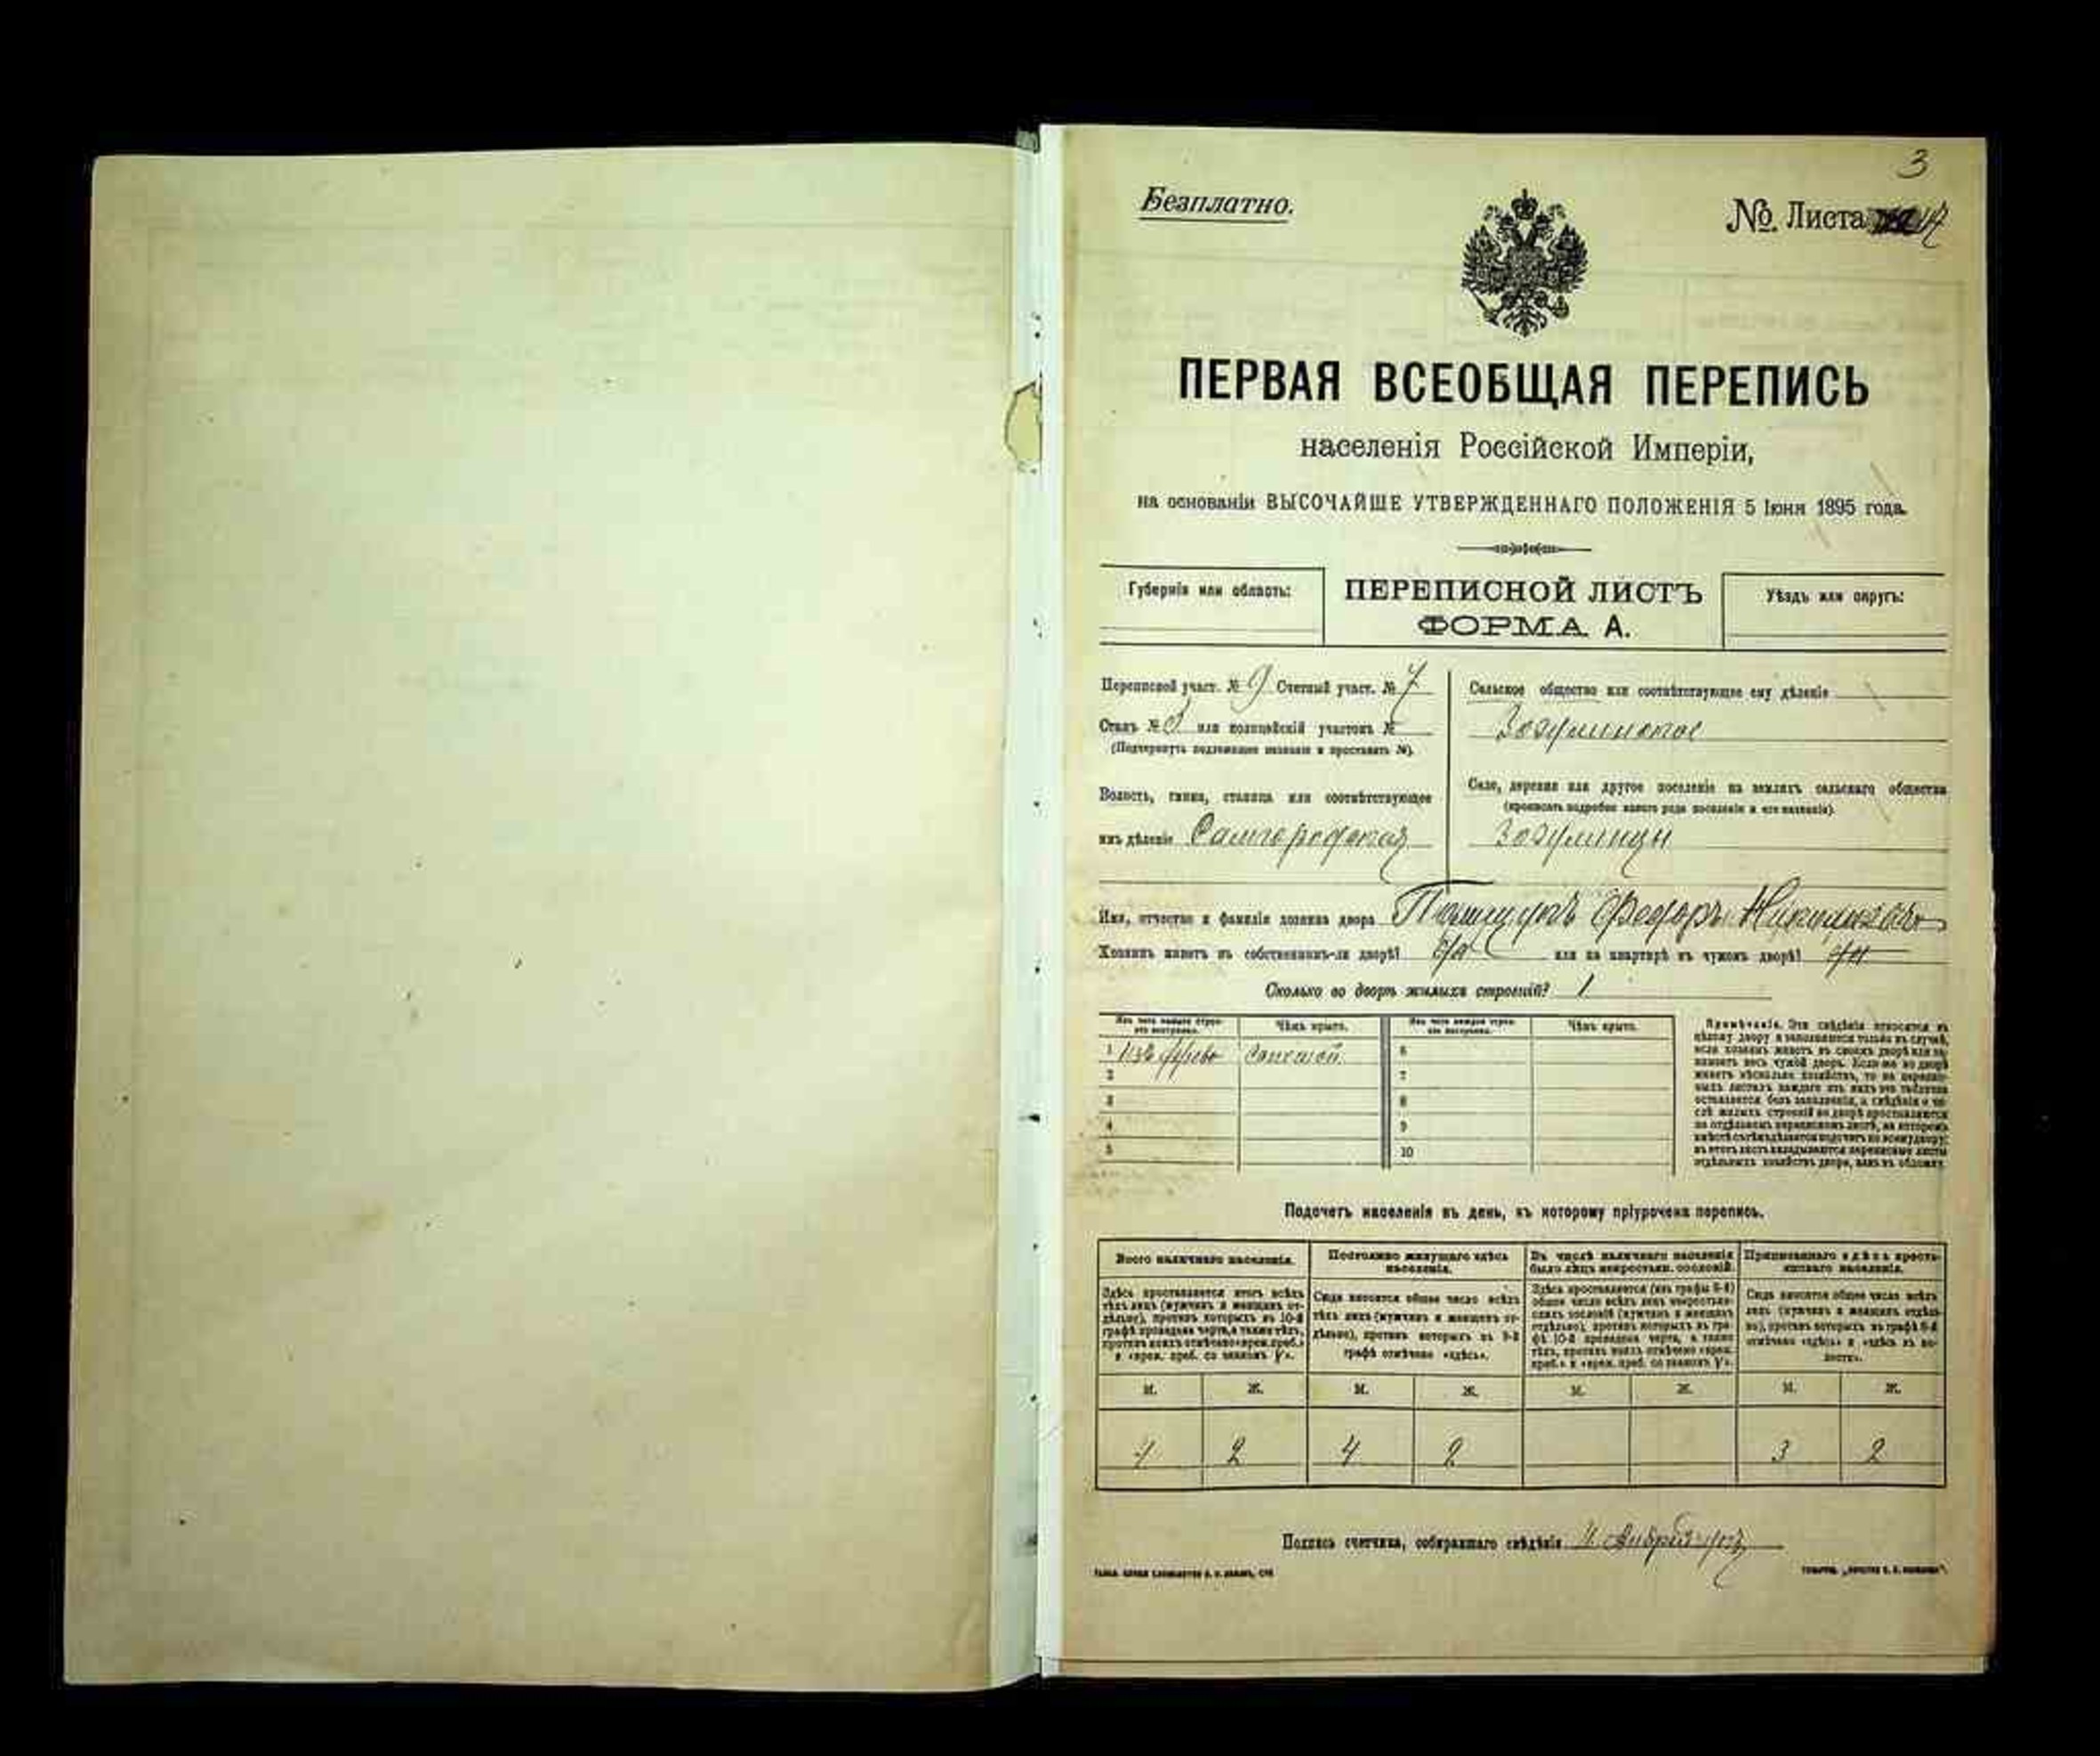 3
Безплатно.
№ Листа
ПЕРВАЯ ВСЕОБЩАЯ ПЕРЕПИСЬ
населенія Россійской Имперіи,
на основаніи ВЫСОЧАЙШЕ УТВЕРЖДЕННАГО ПОЛОЖЕНІЯ 5 Іюня 1895 года.
Губернія или область:
ПЕРЕПИСНОЙ ЛИСТЪ
ФОРМА А.
Уѣздъ или округъ:
Переписной участ. № 9 Счетный участ. № 7
Станъ № или полицейскій участокъ №
(Подчеркнуть подлежащее названіе и проставить №).
Волость, гмина, станица или соотвѣтствующее
имъ дѣленіе Самгородская
Сельское общество или соотвѣтствующее ему дѣленіе
Зозулинское
Село, деревня или другое поселеніе на земляхъ сельскаго общества
(прописать подробно какого рода поселеніе и его названіе).
Зозулинцы
Имя, отчество и фамилія хозяина двора Федоръ
Хозяинъ живетъ въ собственномъ-ли дворѣ? или на квартирѣ въ чужомъ дворѣ?
Сколько во дворѣ жилыхъ строеній? 1
Изъ чего каждое строеніе построено.
Чѣмъ крыто.
Изъ чего каждое строеніе построено.
Чѣмъ крыто.
1 изъ дерева 6
2 7
3 8
4 9
5 10
Примѣчаніе. Эти свѣдѣнія относятся къ
цѣлому двору и заполняются только въ случаѣ,
если хозяинъ живетъ въ своемъ дворѣ или за-
нимаетъ весь чужой дворъ. Если-же во дворѣ
живетъ нѣсколько хозяйствъ, то на перепис-
ныхъ листахъ каждаго изъ нихъ эта табличка
оставляется безъ заполненія, а свѣдѣнія о чи-
слѣ жилыхъ строеній во дворѣ проставляются
на отдѣльномъ переписномъ листѣ, на которомъ
вмѣстѣ съ тѣмъ дѣлается подсчетъ по всему двору;
въ этотъ листъ вкладываются переписные листы
отдѣльныхъ хозяйствъ двора, какъ въ обложку.
Подсчетъ населенія въ день, къ которому пріурочена перепись.
Всего наличнаго населенія.
Постоянно живущаго здѣсь
населенія.
Въ числѣ наличнаго населенія
было лицъ некрестьян. сословій.
Приписаннаго здѣсь кресть-
янскаго населенія.
Здѣсь проставляется итогъ всѣхъ
тѣхъ лицъ (мужчинъ и женщинъ от-
дѣльно), противъ которыхъ въ 10-й
графѣ проведена черта, а также тѣхъ,
противъ коихъ отмѣчено «врем. преб.»
и «врем. преб. со знакомъ V».
Сюда вносится общее число всѣхъ
тѣхъ лицъ (мужчинъ и женщинъ от-
дѣльно), противъ которыхъ въ 9-й
графѣ отмѣчено «здѣсь».
Сюда вносится общее число всѣхъ
лицъ (мужчинъ и женщинъ отдѣль-
но), противъ которыхъ въ графѣ 8-й
отмѣчено «здѣсь» и «здѣсь въ во-
лости».
М. Ж. М. Ж. М. Ж. М. Ж.
4 2 4 2 3 2
Подпись счетчика, собиравшаго свѣдѣнія